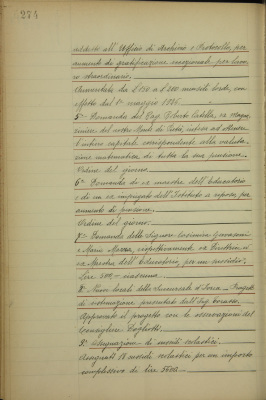 284
addetto all'Ufficio di Archivio e Protocollo, per
aumento di gratificazione mensile per lavo-
ro straordinario.
Aumentata da £ 150 a £ 200 mensili lorde, con
effetto dal 1° maggio
5° Domanda del Rag. Catella, ex ragio-
niere del nostro Monte di Pietà, intesa ad ottenere
l'intero capitale corrispondente alla valuta-
zione matematica di tutta la sua pensione.
Ordine del giorno
6° Domanda di ex maestra dell'Educatorio
e di un ex impiegato dell'Istituto a riposo, per
aumento di pensione.
Ordine del giorno.
7° Domanda delle Signore Lavinia Giovanni
e Maria Mazza, rispettivamente ex
ex Maestra dell'Educatorio, per un sussidio.
Lire 200,- ciascuna.
8° Nuovi locali della Succursale d'Ivrea - Progetto
di sistemazione presentato dall'Ing.
Approvato il progetto con le osservazioni del
Consigliere
9° Assegnazione di sussidi scolastici.
Assegnati 18 sussidi scolastici per un importo
complessivo di Lire